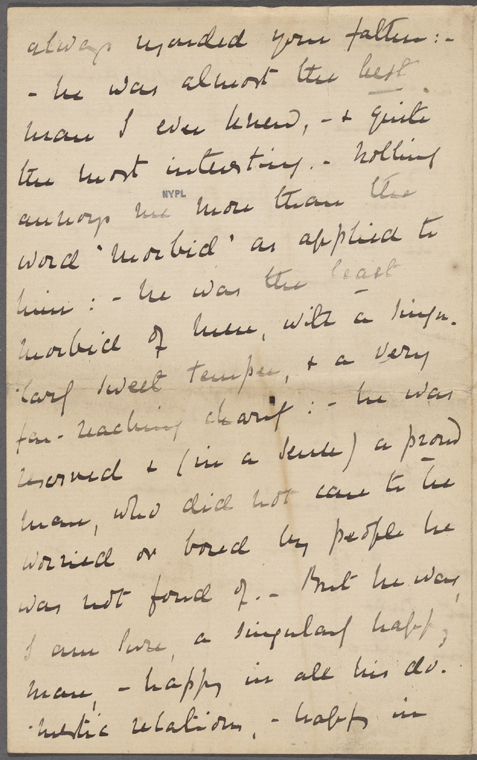 always regarded your father:-
- he was almost the best
man I ever knew, - & quite
the most interesting. - Nothing
annoys me more than the
NYPL
word 'morbid' as applied to
him: - he was the least
morbid of men, with a singu-
larly sweet temper, & a very
far-reaching charity: - he was
reserved & (in a sense) a proud
man, who did not care to be
worried or bored by people he
was not fond of. - But he was,
I am sure, a singularly happy
man, - happy in all his do-
mestic relations, - happy in